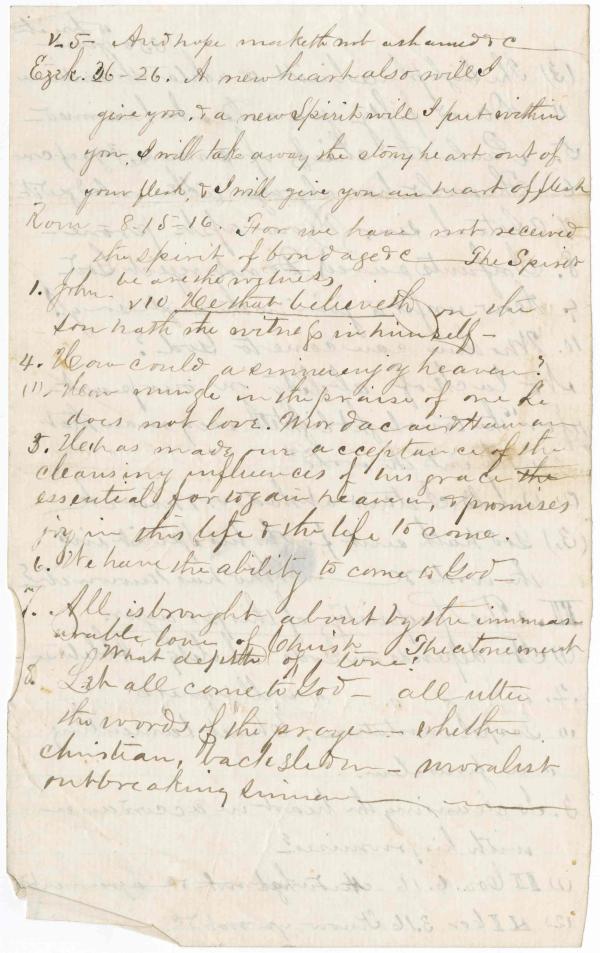 v-5- And hope maketh not ashamed &c
Ezek. 36-26. A new heart also will I
give you, & a new Spirit will I put within
you, I will take away the stony heart out of
your flesh, & I will give you an heart of flesh
Rom 8-15-16. For we have not received
the spirit of bondage &c — The Spirit
be are the witness
1. John v 10 He that believeth on the
son hath the witness in himself-
4. How could a sinner enjoy heaven?
(1)- How mingle in the praise of one he
does not love. Mordacai & Haman
5. He has made our acceptance of the
cleansing influences of his grace the
essential for to gain heaven, & promises
joy in this life & the life to come.
6. We have the ability to come to God-
7. All is brought about by the immeas-
urable love of Christ The atonement
What depth of love!
8. Let all come to God- all utter
the words of the prayer- whether
christian, backslider- moralist
outbreaking sinner